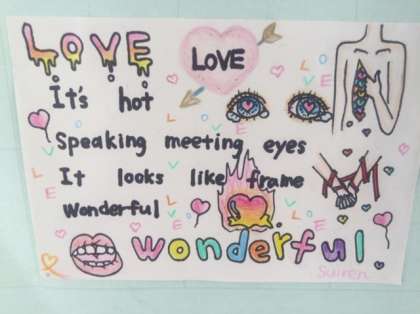 LOVE
LOVE
It's hot
Speaking meeting eyes
It looks like frame
Wonderful
wonderful
Suiren